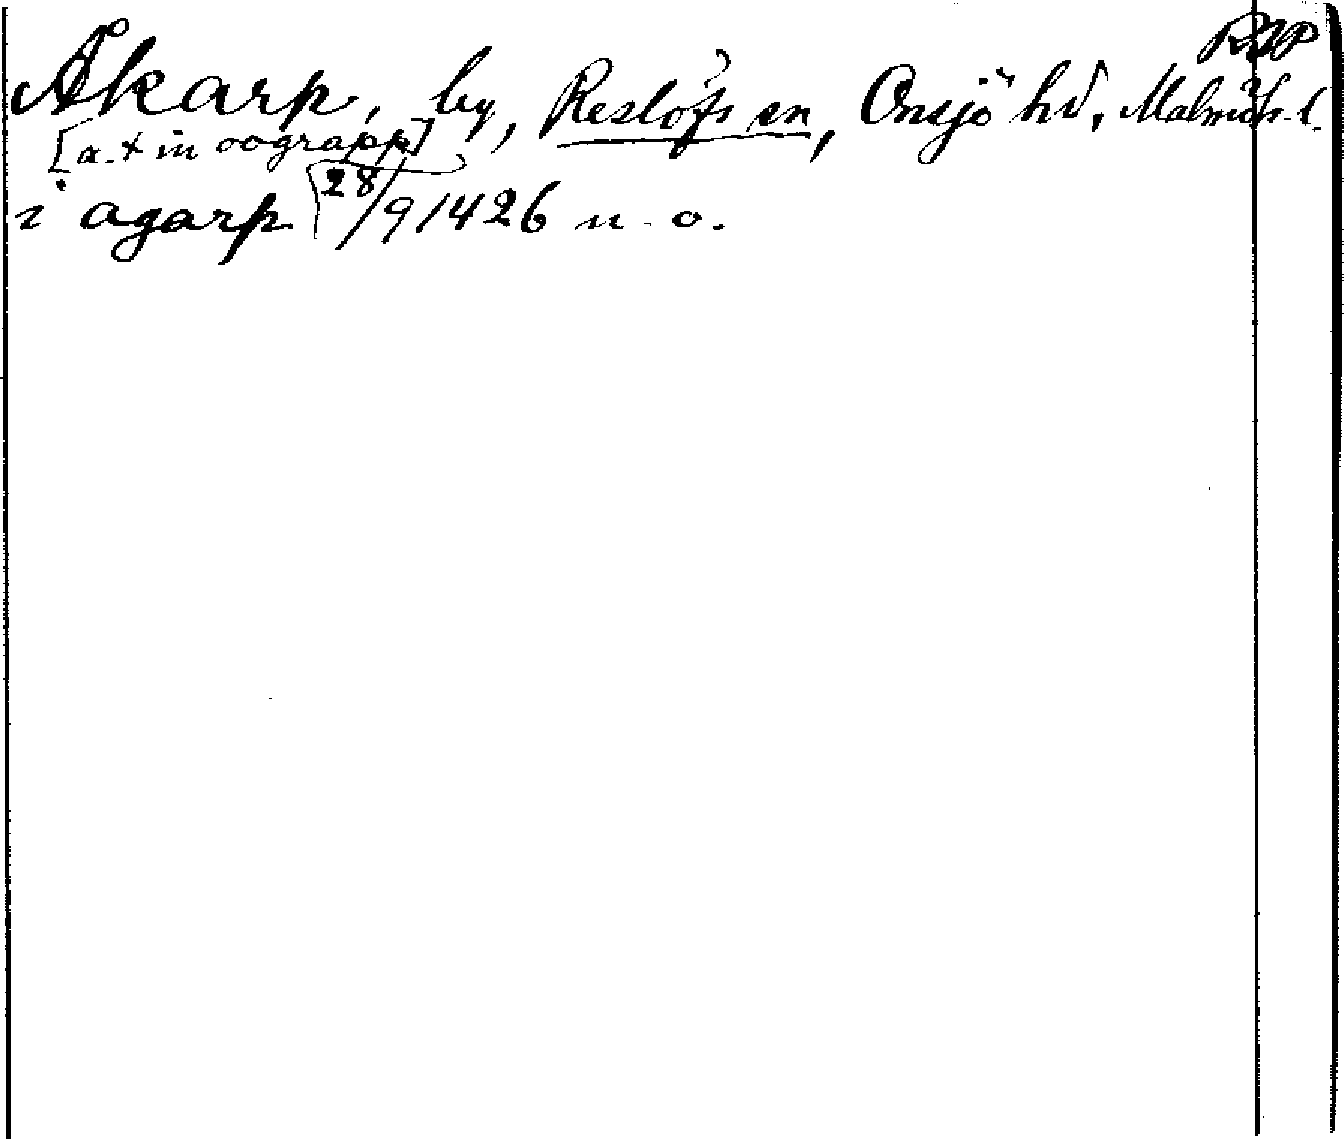 RAP
Åkarp, by, Reslöfs sn, Onsjö hd, Malmöh. l.
[a. + in oograpp]
i agarp 28/9 1426 n. o.